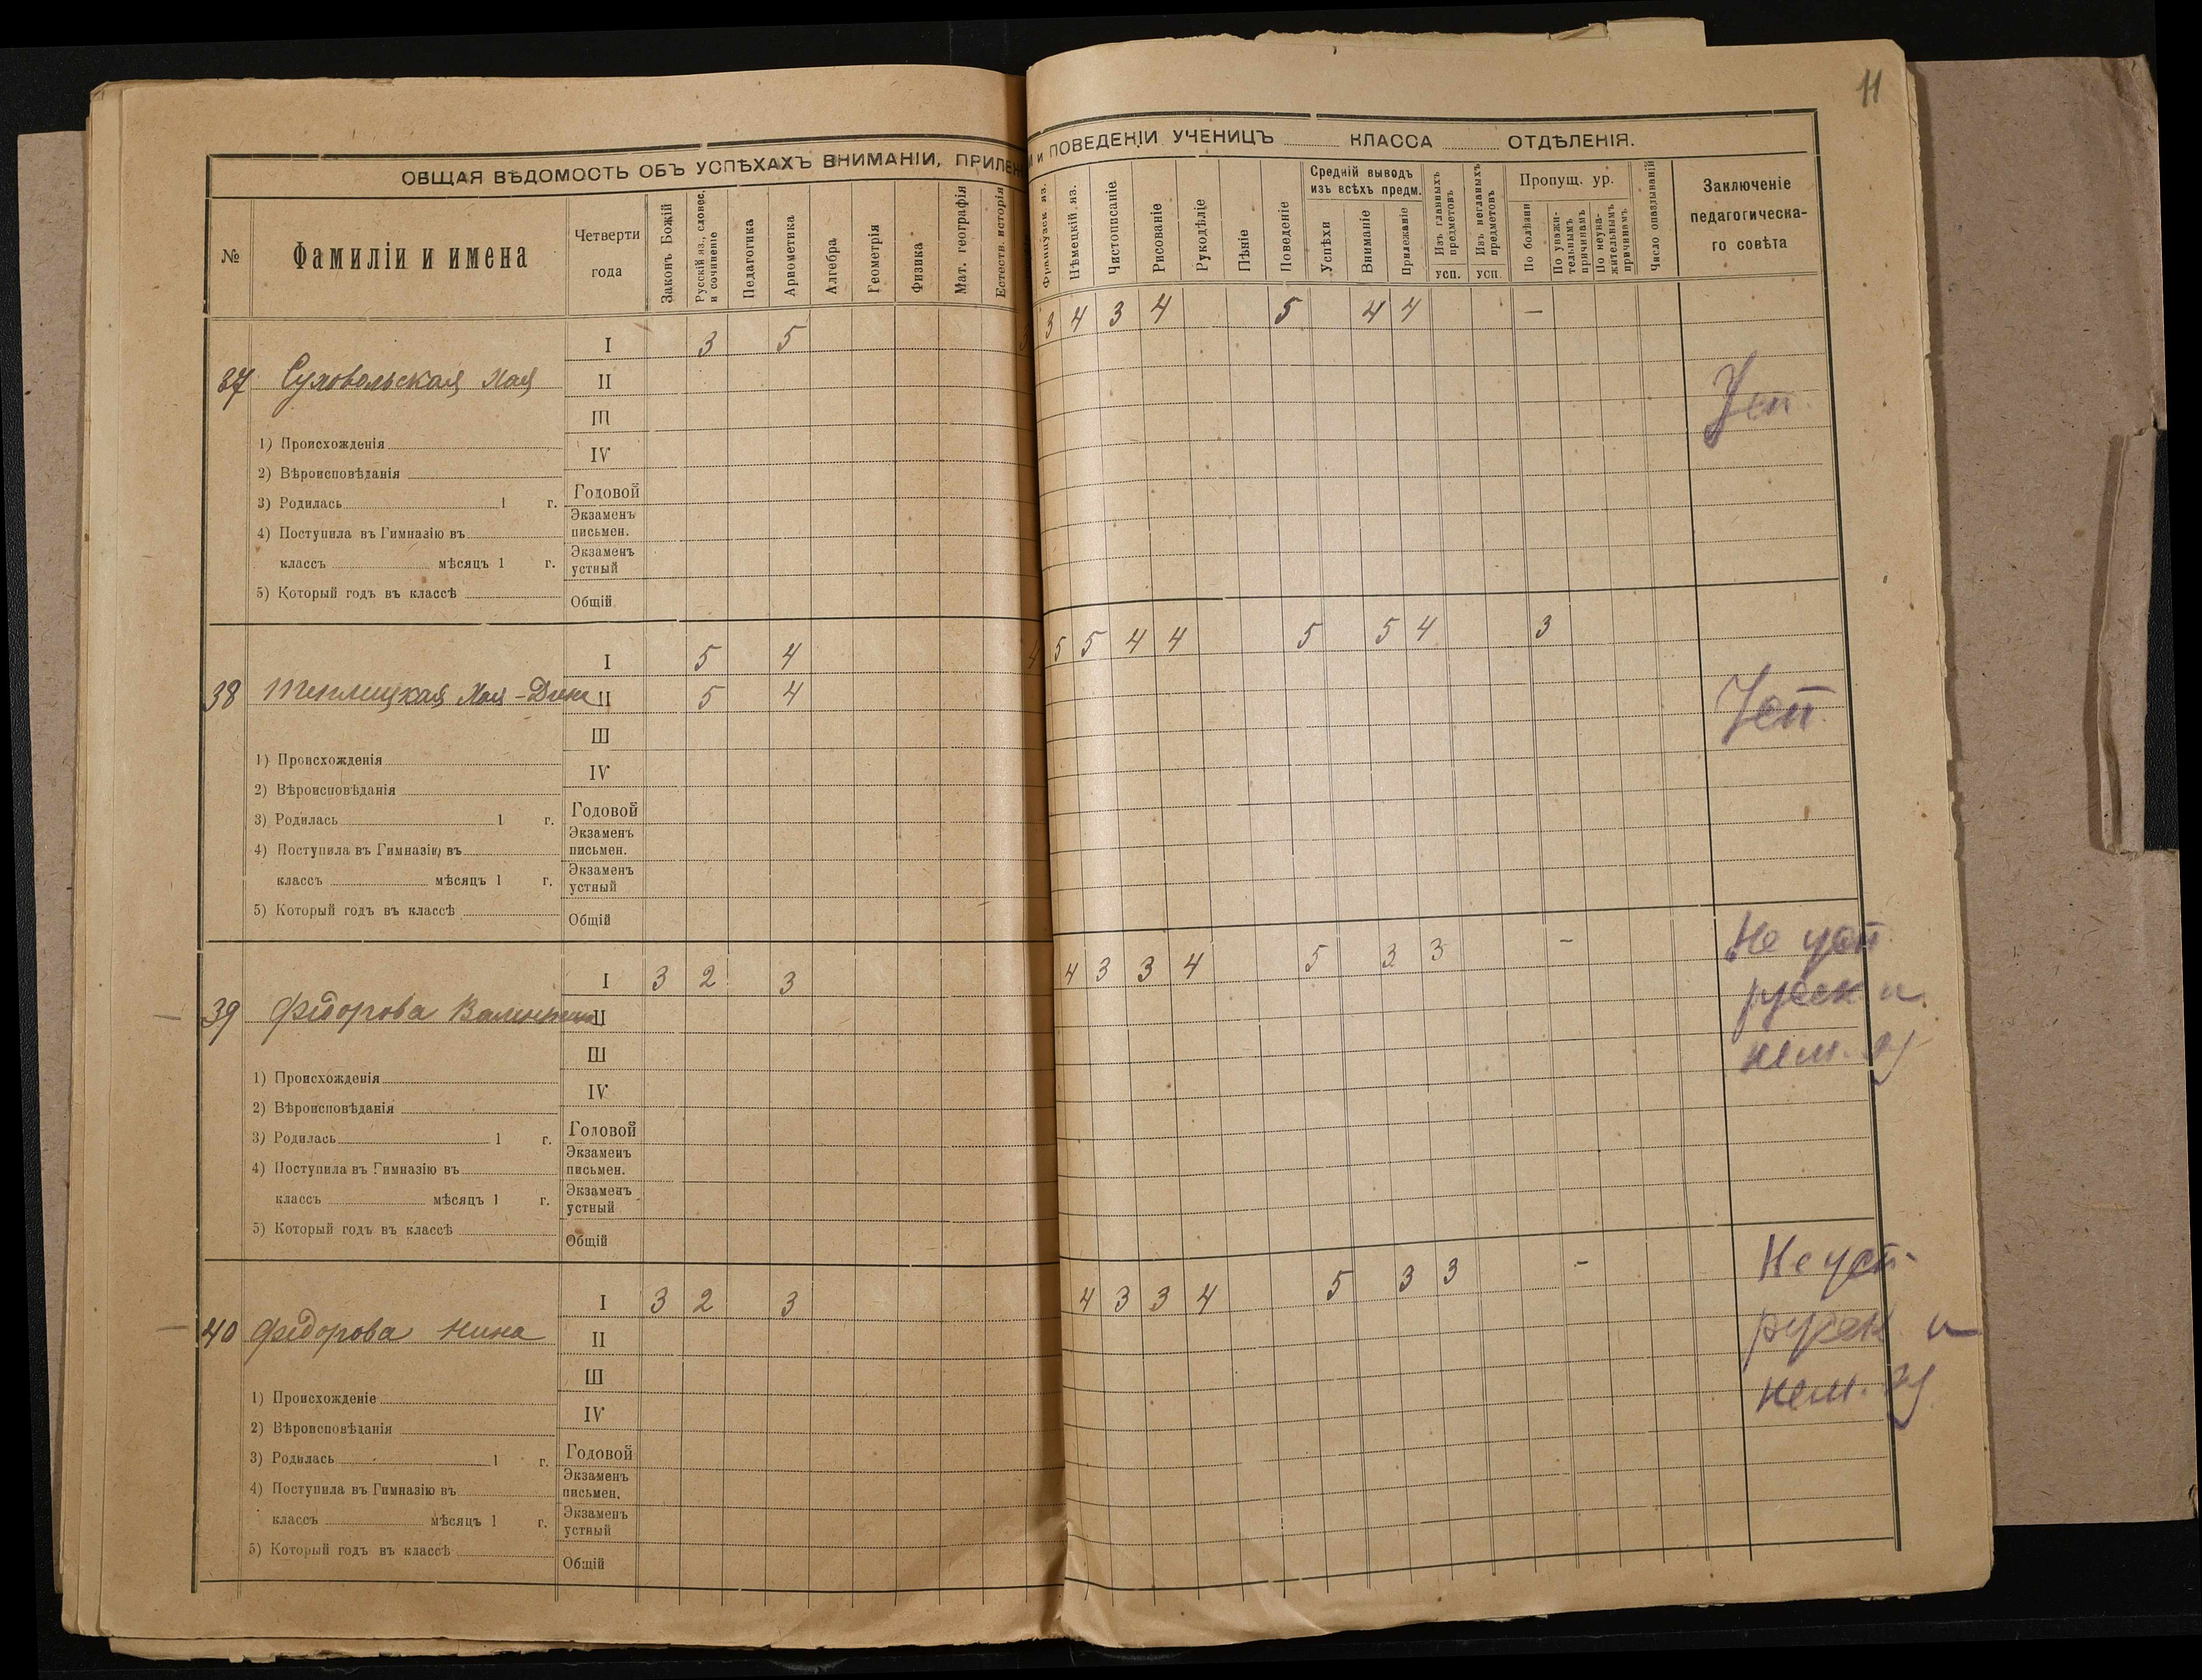 11
ОБЩАЯ ВѢДОМОСТЬ ОБЪ УСПѢХАХЪ ВНИМАНІИ, ПРИЛЕЖ И и ПОВЕДЕНІИ УЧЕНИЦЪ КЛАССА ОТДѢЛЕНІЯ.
№
Фамиліи и имена
Четверти года
Законъ Божій
Русскій яз., словес. и сочиненіе
Педагогика
Арнометика
Алгебра
Геометрія
Физика
Мат. географія
Естеств. исторія
Французск. яз.
Нѣмецкій яз.
Чистописаніе
Рисованіе
Рукодѣліе
Пѣніе
Поведеніе
Средній выводъ изъ всѣхъ предм.
Успѣхи
Вниманіе
Прилежаніе
Изъ главныхъ предметовъ
усп.
Изъ неглавныхъ предметовъ
усп.
Пропущ. ур.
По болѣзни
По уважительнымъ причинамъ
По неуважительнымъ причинамъ
Число опаздываній
Заключеніе педагогическаго совѣта
37 Суховольская Хая
I 3 5 3 4 3 4 5 4 4 –
II
III
IV
Годовой
Экзаменъ письмен.
Экзаменъ устный
Общій
Усп.
1) Происхожденія
2) Вѣроисповѣданія
3) Родилась 1 г.
4) Поступила въ Гимназію въ
классъ мѣсяцъ 1 г.
5) Который годъ въ классѣ
38 Теплицкая Хая-Дина
I 5 4 4 5 5 4 4 5 5 4 3
II 5 4
III
IV
Годовой
Экзаменъ письмен.
Экзаменъ устный
Общій
Усп.
1) Происхожденія
2) Вѣроисповѣданія
3) Родилась 1 г.
4) Поступила въ Гимназію въ
классъ мѣсяцъ 1 г.
5) Который годъ въ классѣ
39 Федорова Валентина
I 3 2 3 4 3 3 4 5 3 3 –
II
III
IV
Годовой
Экзаменъ письмен.
Экзаменъ устный
Общій
Не усп.
русск и
нем. яз
1) Происхожденія
2) Вѣроисповѣданія
3) Родилась 1 г.
4) Поступила въ Гимназію въ
классъ мѣсяцъ 1 г.
5) Который годъ въ классѣ
40 Федорова Нина
I 3 2 3 4 3 3 4 5 3 3 –
II
III
IV
Годовой
Экзаменъ письмен.
Экзаменъ устный
Общій
Не усп.
русск и
нем. яз
1) Происхожденіе
2) Вѣроисповѣданія
3) Родилась 1 г.
4) Поступила въ Гимназію въ
классъ мѣсяцъ 1 г.
5) Который годъ въ классѣ